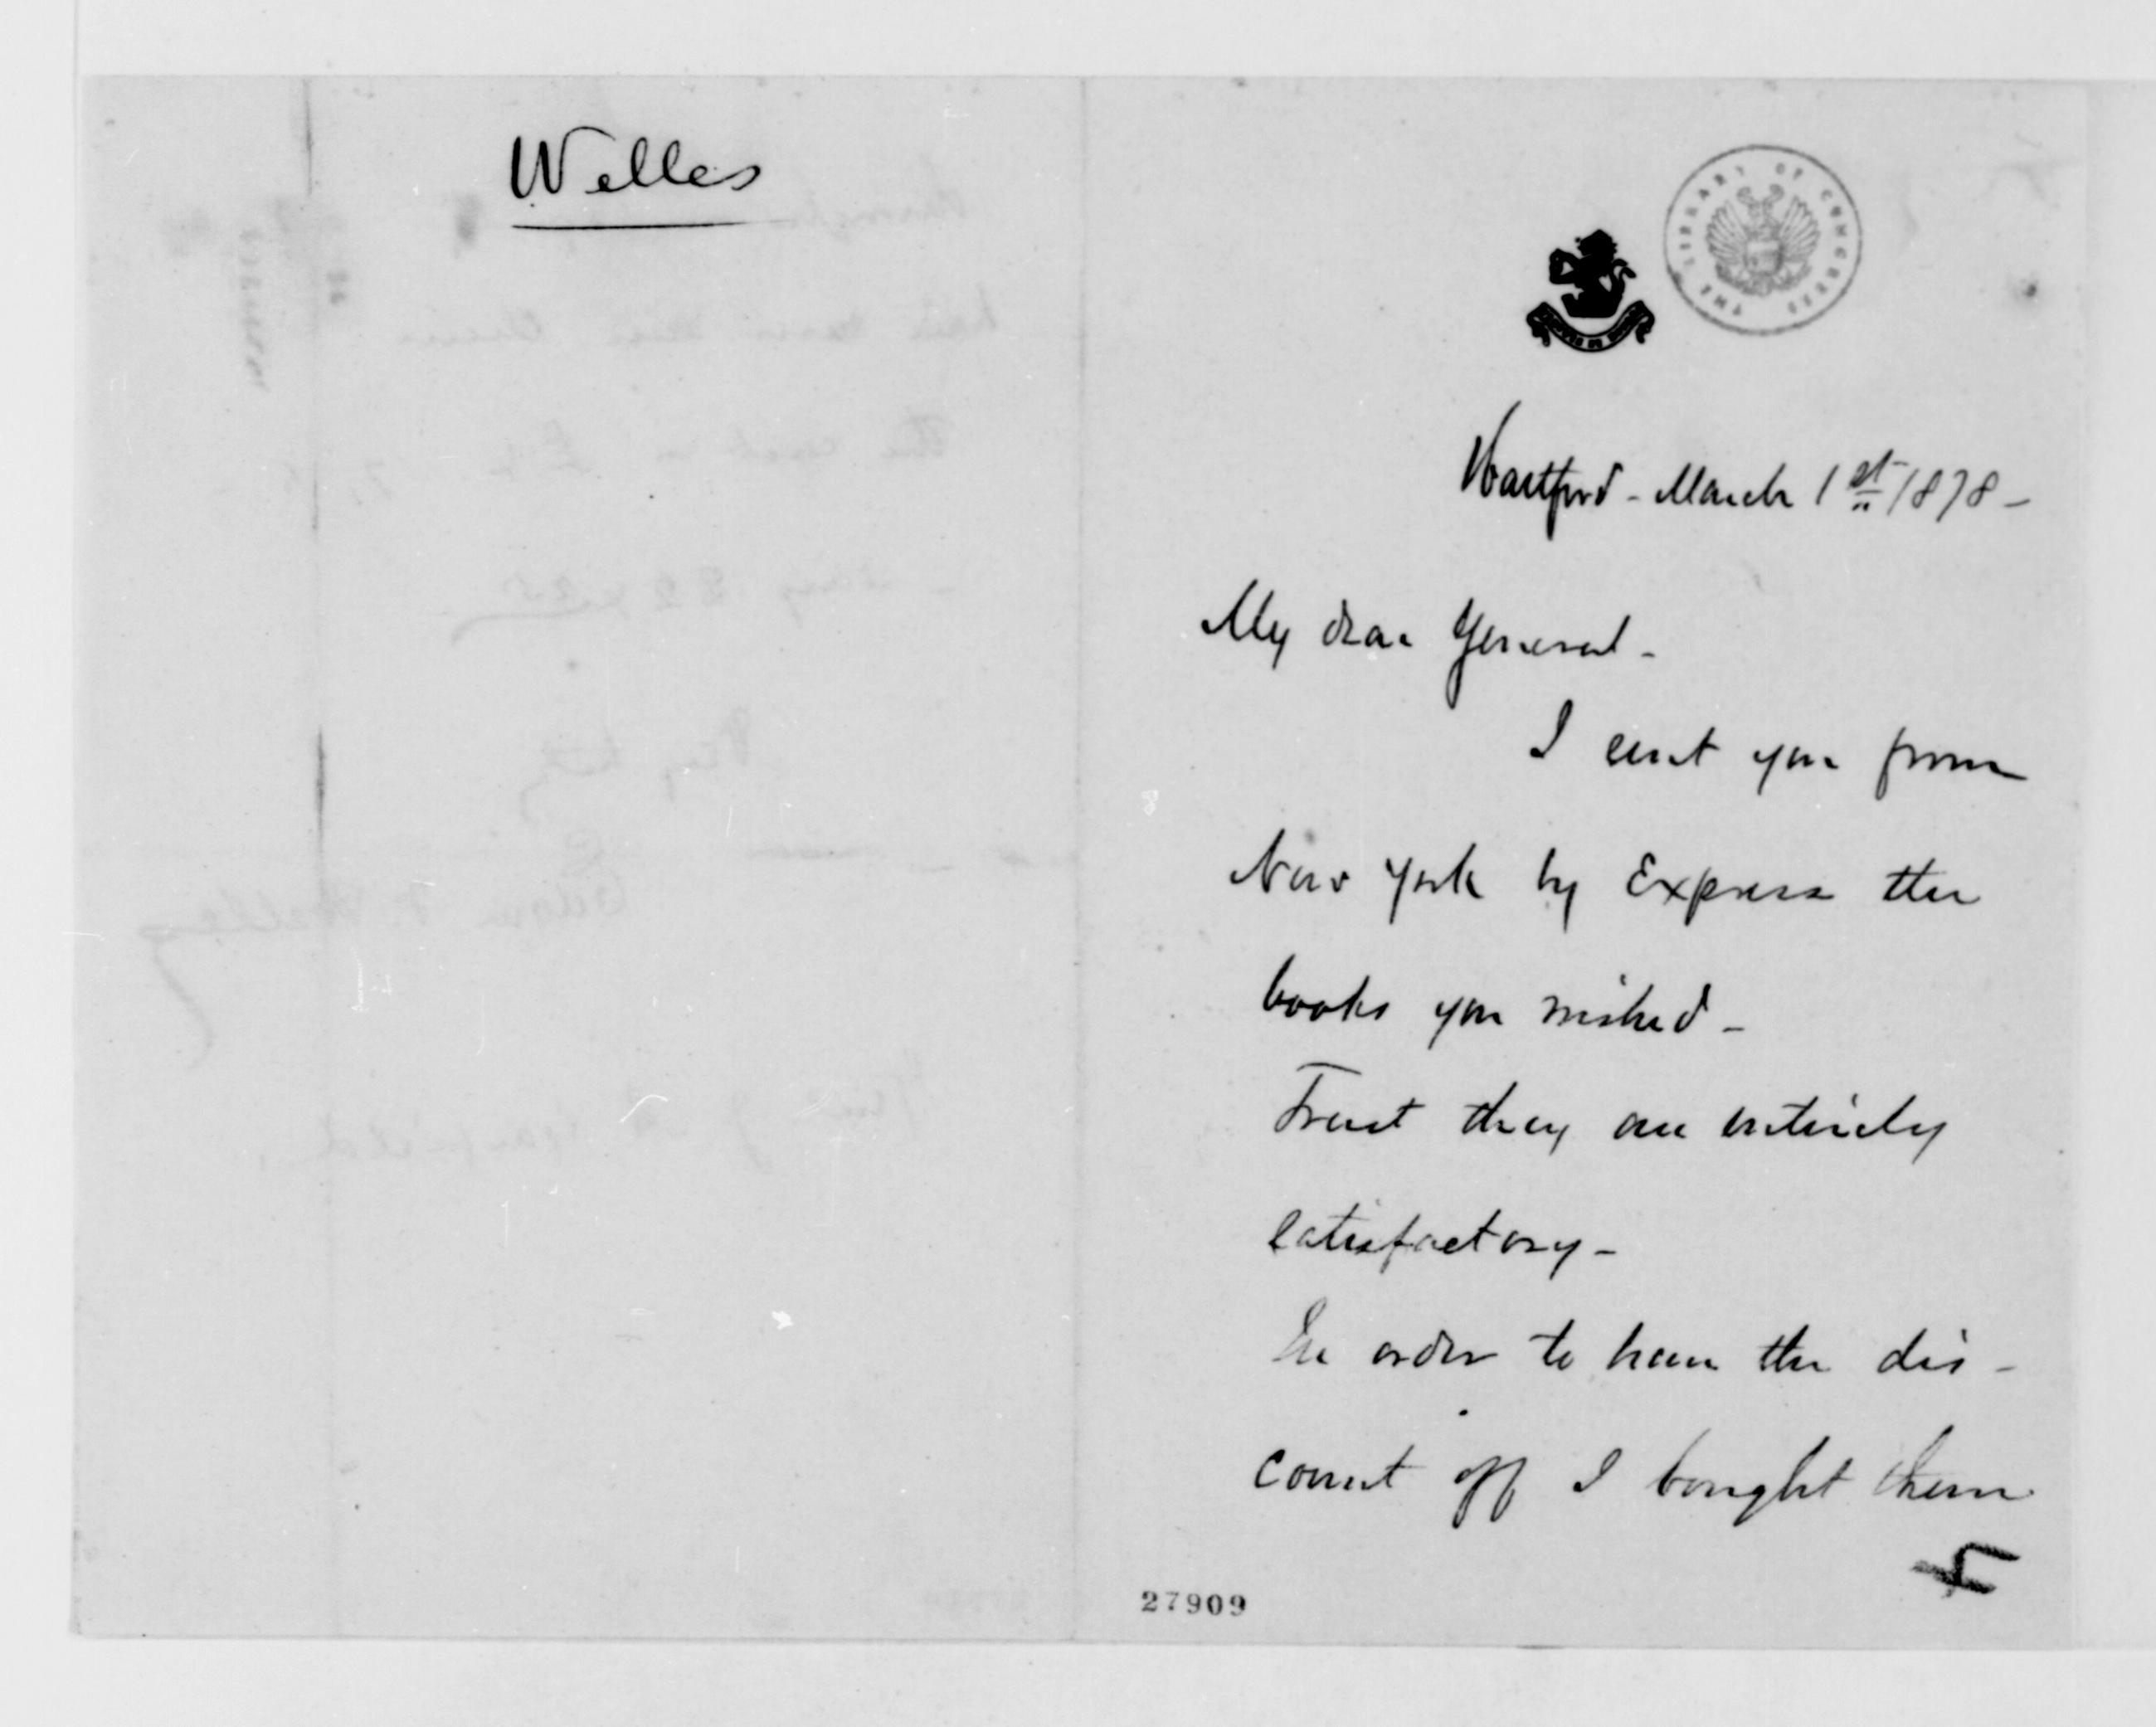 Welles
THE LIBRARY OF CONGRESS
Hartford - March 1st 1878 -
My dear General -
I sent you from
New York by Express the
books you wished -
Trust they are entirely
satisfactory -
In order to have the dis -
count off I bought them
27909